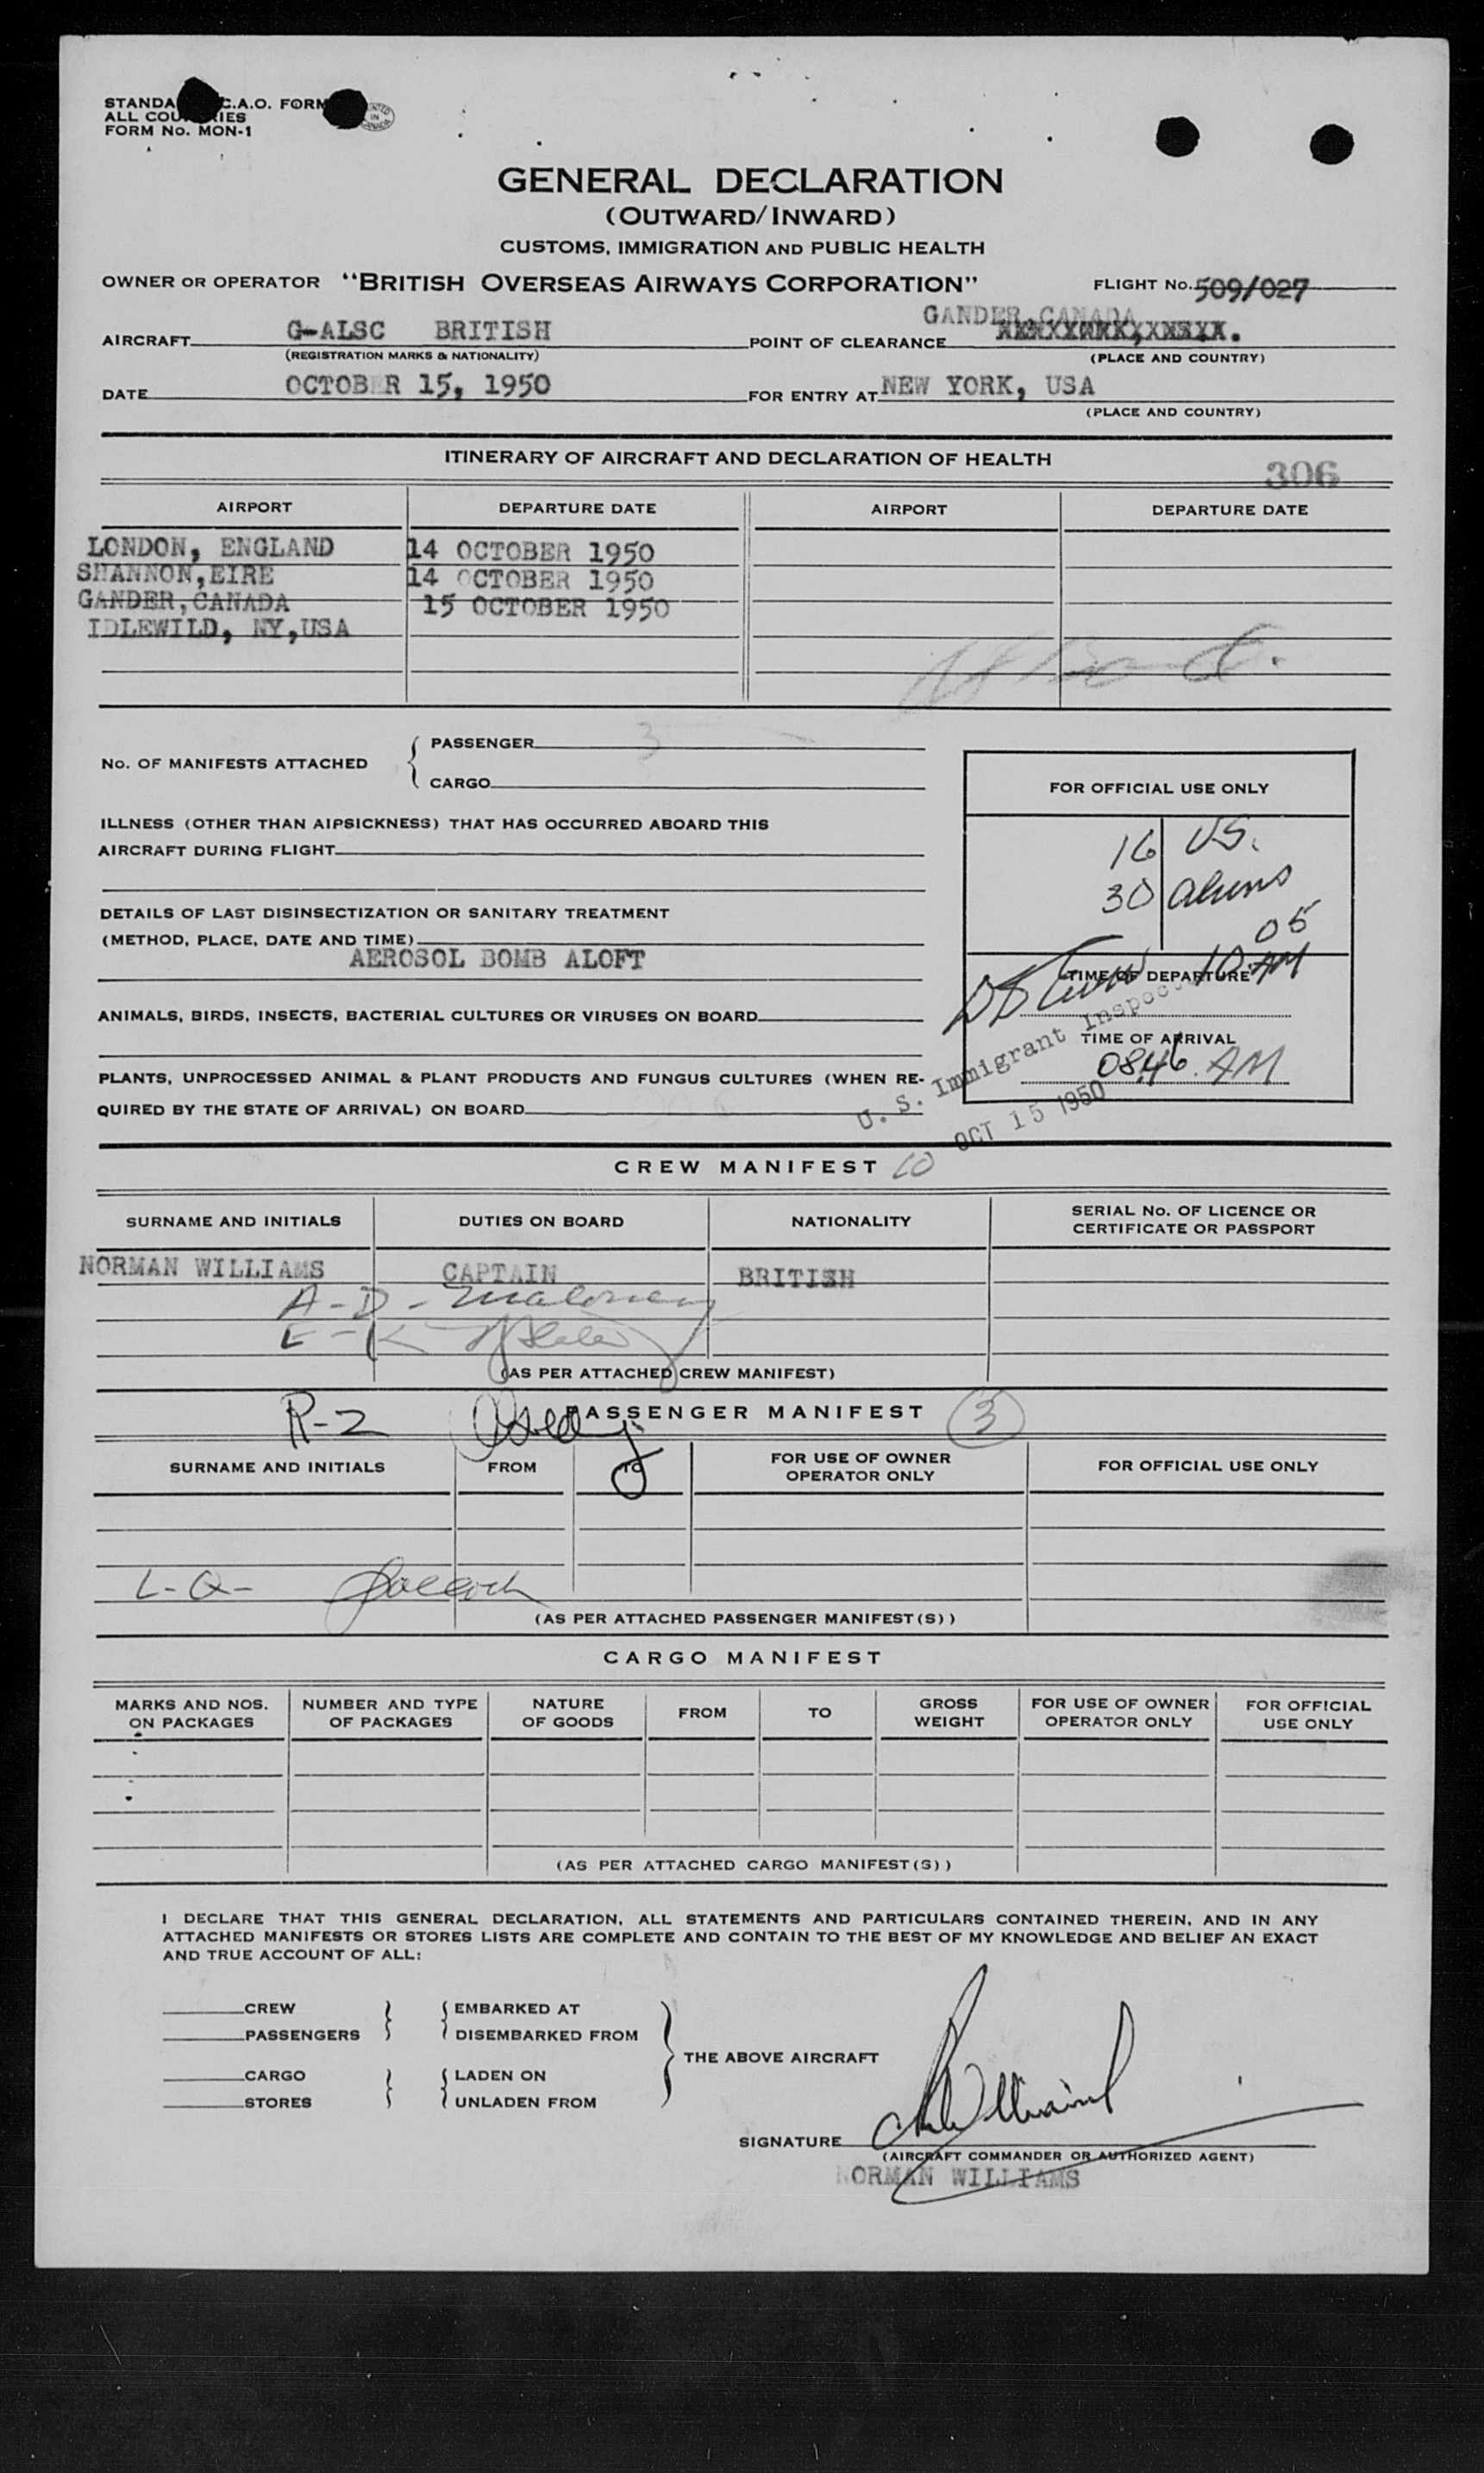 STANDA C.A.O. FORM
ALL COU IES
FORM No. MON-1
PRINTED IN CANADA
GENERAL DECLARATION
(OUTWARD/INWARD)
CUSTOMS, IMMIGRATION AND PUBLIC HEALTH
OWNER OR OPERATOR "BRITISH OVERSEAS AIRWAYS CORPORATION" FLIGHT No. 509/027
GANDER, CANADA
AIRCRAFT G-ALSC BRITISH POINT OF CLEARANCE
(REGISTRATION MARKS & NATIONALITY) (PLACE AND COUNTRY)
DATE OCTOB R 15, 1950 FOR ENTRY AT NEW YORK, USA
(PLACE AND COUNTRY)
ITINERARY OF AIRCRAFT AND DECLARATION OF HEALTH 306
AIRPORT DEPARTURE DATE AIRPORT DEPARTURE DATE
LONDON, ENGLAND 14 OCTOBER 1950
SHANNON, EIRE 14 OCTOBER 1950
GANDER, CANADA 15 OCTOBER 1950
IDLEWILD, NY, USA
No. OF MANIFESTS ATTACHED { PASSENGER 3
CARGO
FOR OFFICIAL USE ONLY
16 US.
30 aliens
ILLNESS (OTHER THAN AIRSICKNESS) THAT HAS OCCURRED ABOARD THIS
AIRCRAFT DURING FLIGHT
DETAILS OF LAST DISINSECTIZATION OR SANITARY TREATMENT
(METHOD, PLACE, DATE AND TIME)
AEROSOL BOMB ALOFT
05
10 AM
TIME OF DEPARTURE
ANIMALS, BIRDS, INSECTS, BACTERIAL CULTURES OR VIRUSES ON BOARD
TIME OF ARRIVAL
0846 AM
U. S. Immigrant Inspector
OCT 15 1950
PLANTS, UNPROCESSED ANIMAL & PLANT PRODUCTS AND FUNGUS CULTURES (WHEN RE-
QUIRED BY THE STATE OF ARRIVAL) ON BOARD
CREW MANIFEST 10
SURNAME AND INITIALS DUTIES ON BOARD NATIONALITY SERIAL No. OF LICENCE OR
CERTIFICATE OR PASSPORT
NORMAN WILLIAMS CAPTAIN BRITISH
A-D- Maloney
E-K-
(AS PER ATTACHED CREW MANIFEST)
R-2
PASSENGER MANIFEST 3
SURNAME AND INITIALS FROM TO FOR USE OF OWNER
OPERATOR ONLY FOR OFFICIAL USE ONLY
L-Q-
(AS PER ATTACHED PASSENGER MANIFEST(S))
CARGO MANIFEST
MARKS AND NOS.
ON PACKAGES NUMBER AND TYPE
OF PACKAGES NATURE
OF GOODS FROM TO GROSS
WEIGHT FOR USE OF OWNER
OPERATOR ONLY FOR OFFICIAL
USE ONLY
(AS PER ATTACHED CARGO MANIFEST(S))
I DECLARE THAT THIS GENERAL DECLARATION, ALL STATEMENTS AND PARTICULARS CONTAINED THEREIN, AND IN ANY
ATTACHED MANIFESTS OR STORES LISTS ARE COMPLETE AND CONTAIN TO THE BEST OF MY KNOWLEDGE AND BELIEF AN EXACT
AND TRUE ACCOUNT OF ALL:
CREW EMBARKED AT
PASSENGERS DISEMBARKED FROM
THE ABOVE AIRCRAFT
CARGO LADEN ON
STORES UNLADEN FROM
SIGNATURE N Williams
(AIRCRAFT COMMANDER OR AUTHORIZED AGENT)
NORMAN WILLIAMS